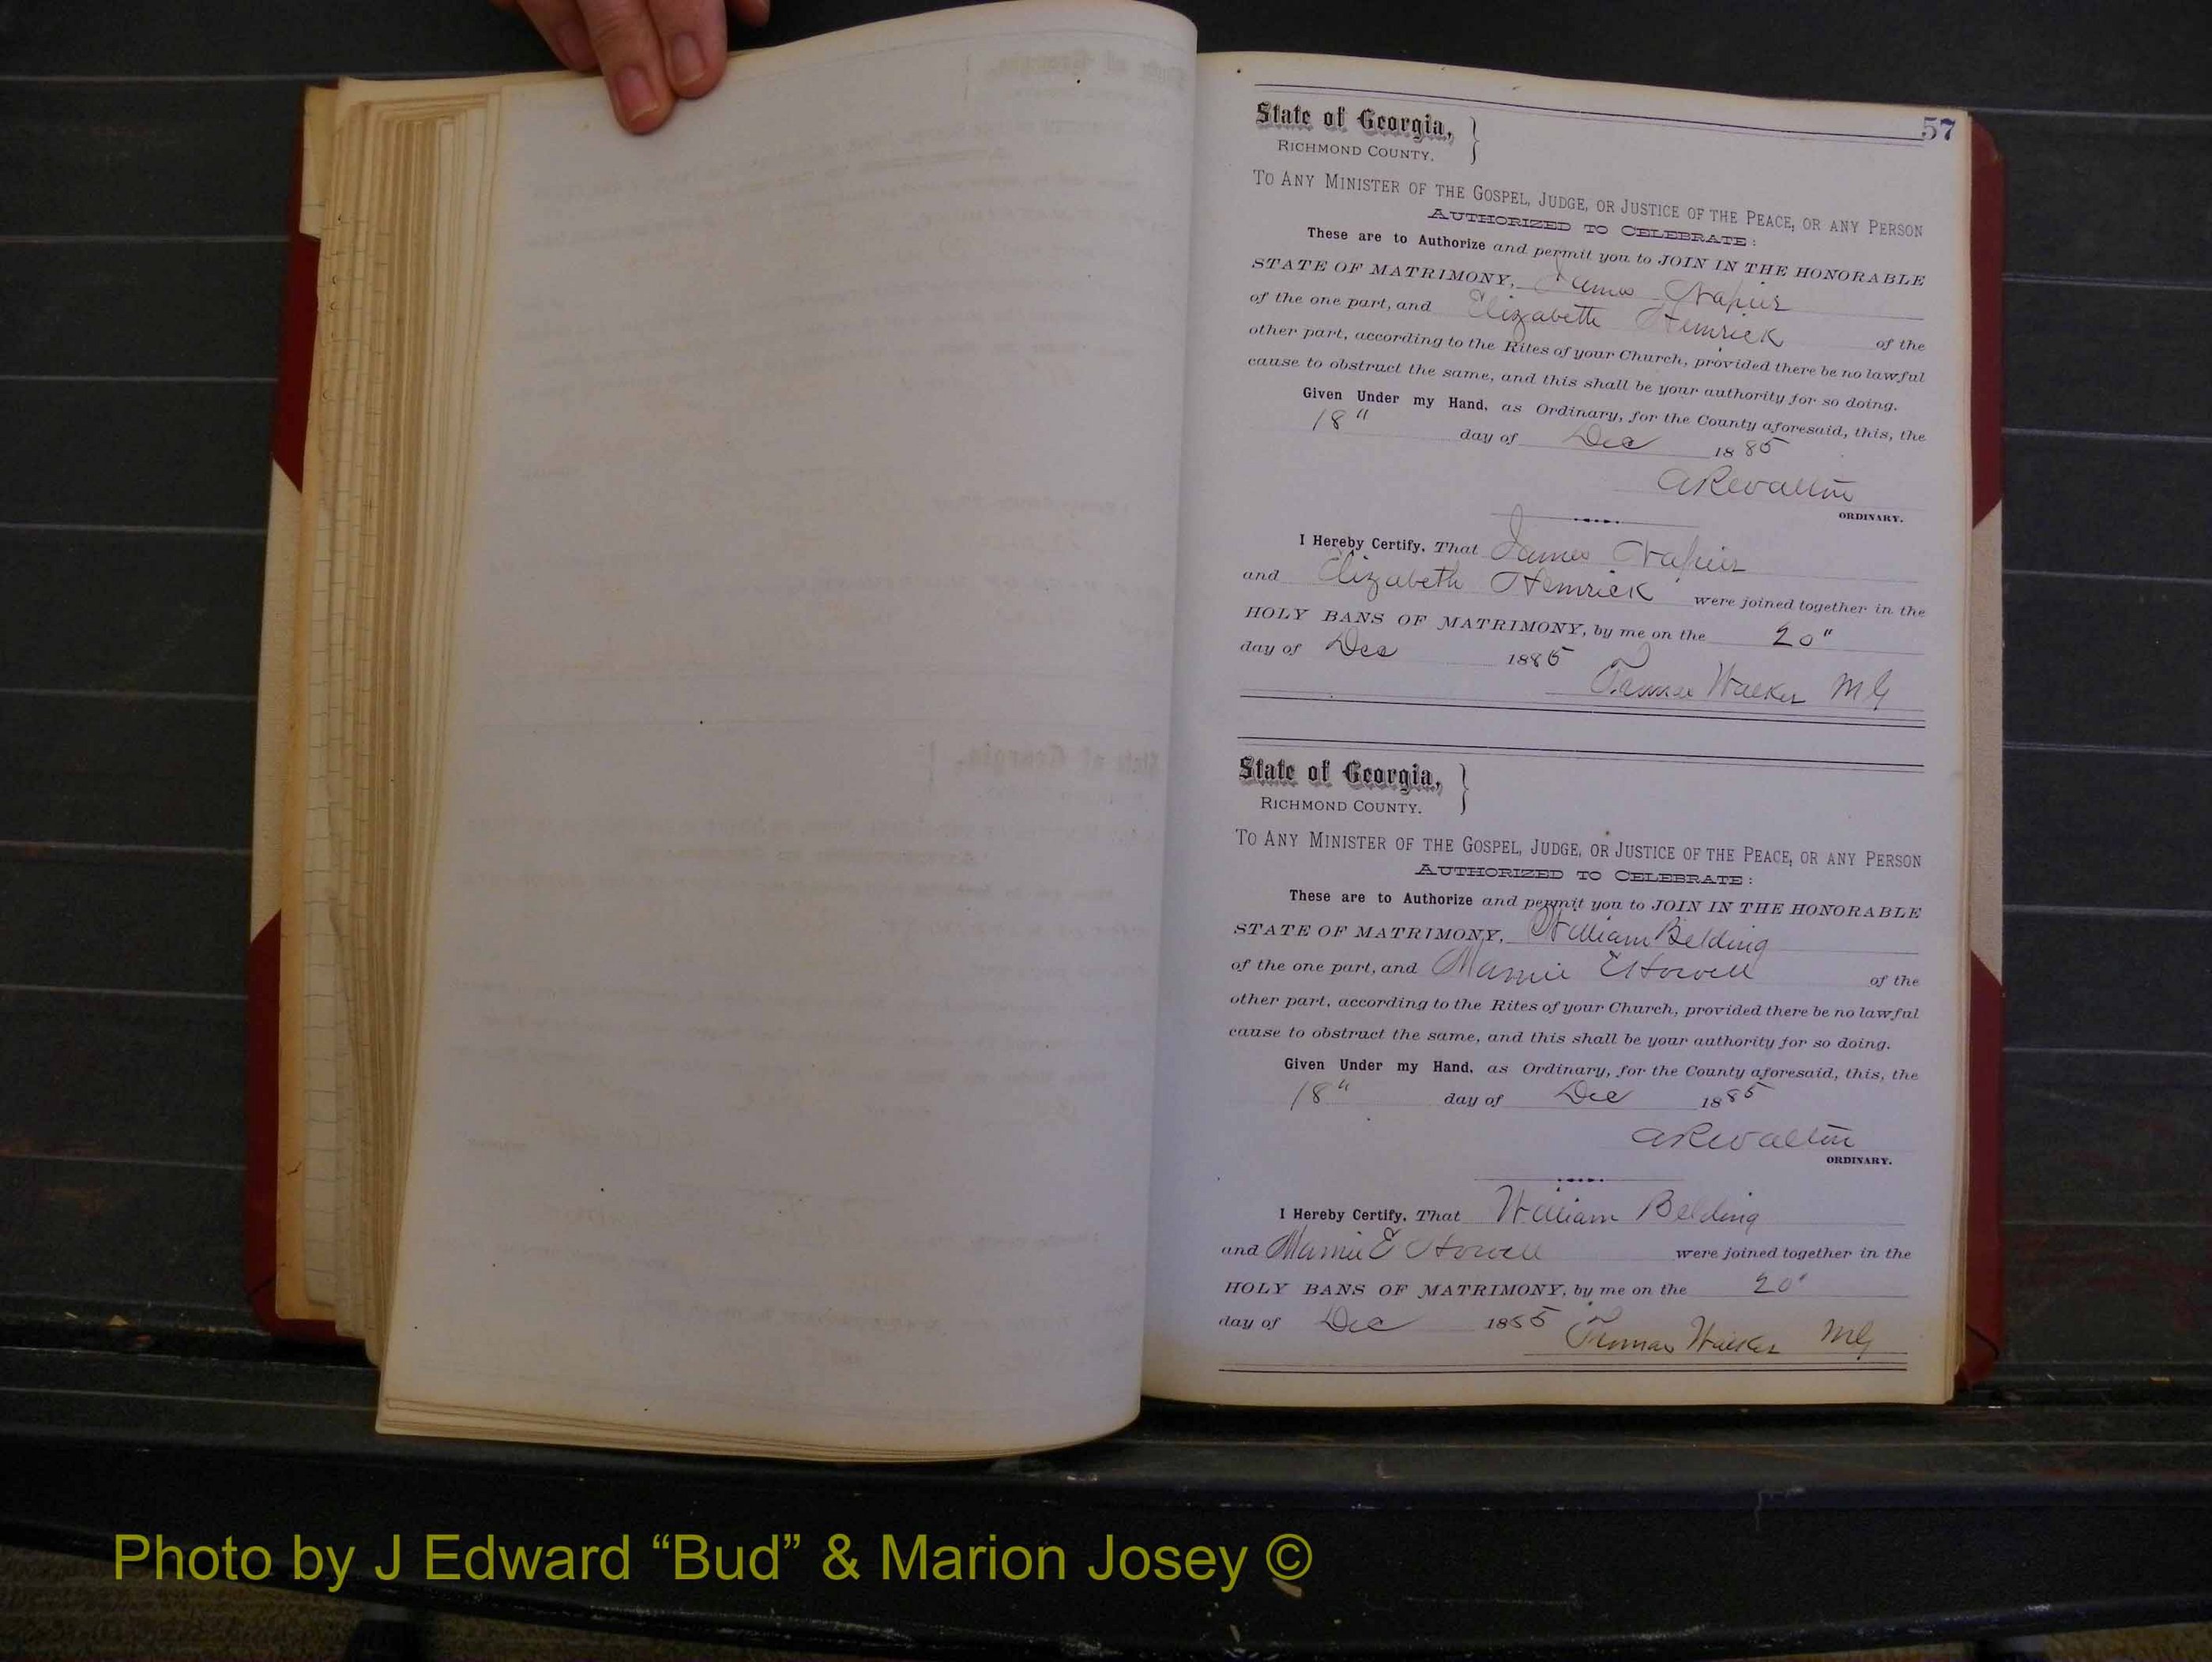 57
State of Georgia, }
RICHMOND COUNTY.
TO ANY MINISTER OF THE GOSPEL, JUDGE, OR JUSTICE OF THE PEACE, OR ANY PERSON
AUTHORIZED TO CELEBRATE:
These are to Authorize and permit you to JOIN IN THE HONORABLE
STATE OF MATRIMONY, James Napier
of the one part, and Elizabeth Hemrick of the
other part, according to the Rites of your Church, provided there be no lawful
cause to obstruct the same, and this shall be your authority for so doing.
Given Under my Hand, as Ordinary, for the County aforesaid, this, the
18" day of Dec 1885
A R Walton
ORDINARY.
I Hereby Certify, That James Napier
and Elizabeth Hemrick were joined together in the
HOLY BANS OF MATRIMONY, by me on the 20"
day of Dec 1885
Thomas Walker MG
State of Georgia, }
RICHMOND COUNTY.
TO ANY MINISTER OF THE GOSPEL, JUDGE, OR JUSTICE OF THE PEACE, OR ANY PERSON
AUTHORIZED TO CELEBRATE:
These are to Authorize and permit you to JOIN IN THE HONORABLE
STATE OF MATRIMONY, William Belding
of the one part, and Mamie E Howell of the
other part, according to the Rites of your Church, provided there be no lawful
cause to obstruct the same, and this shall be your authority for so doing.
Given Under my Hand, as Ordinary, for the County aforesaid, this, the
18" day of Dec 1885
A R Walton
ORDINARY.
I Hereby Certify, That William Belding
and Mamie E Howell were joined together in the
HOLY BANS OF MATRIMONY, by me on the 20"
day of Dec 1885
Thomas Walker MG
Photo by J Edward “Bud” & Marion Josey ©